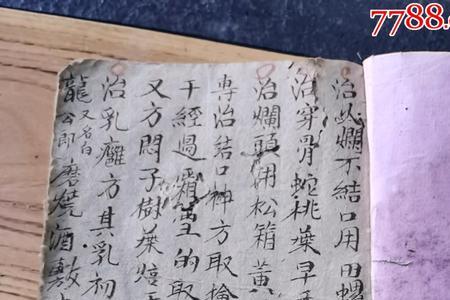 7788.
治人爛不結口用田螺
治穿骨蛇桃葉早
治爛頭用松箱黃
專治結口神方取
干經過霜的取
又方悶子樹葉焙
治乳癰方其乳初
龍又名白公即磨燒酒敷